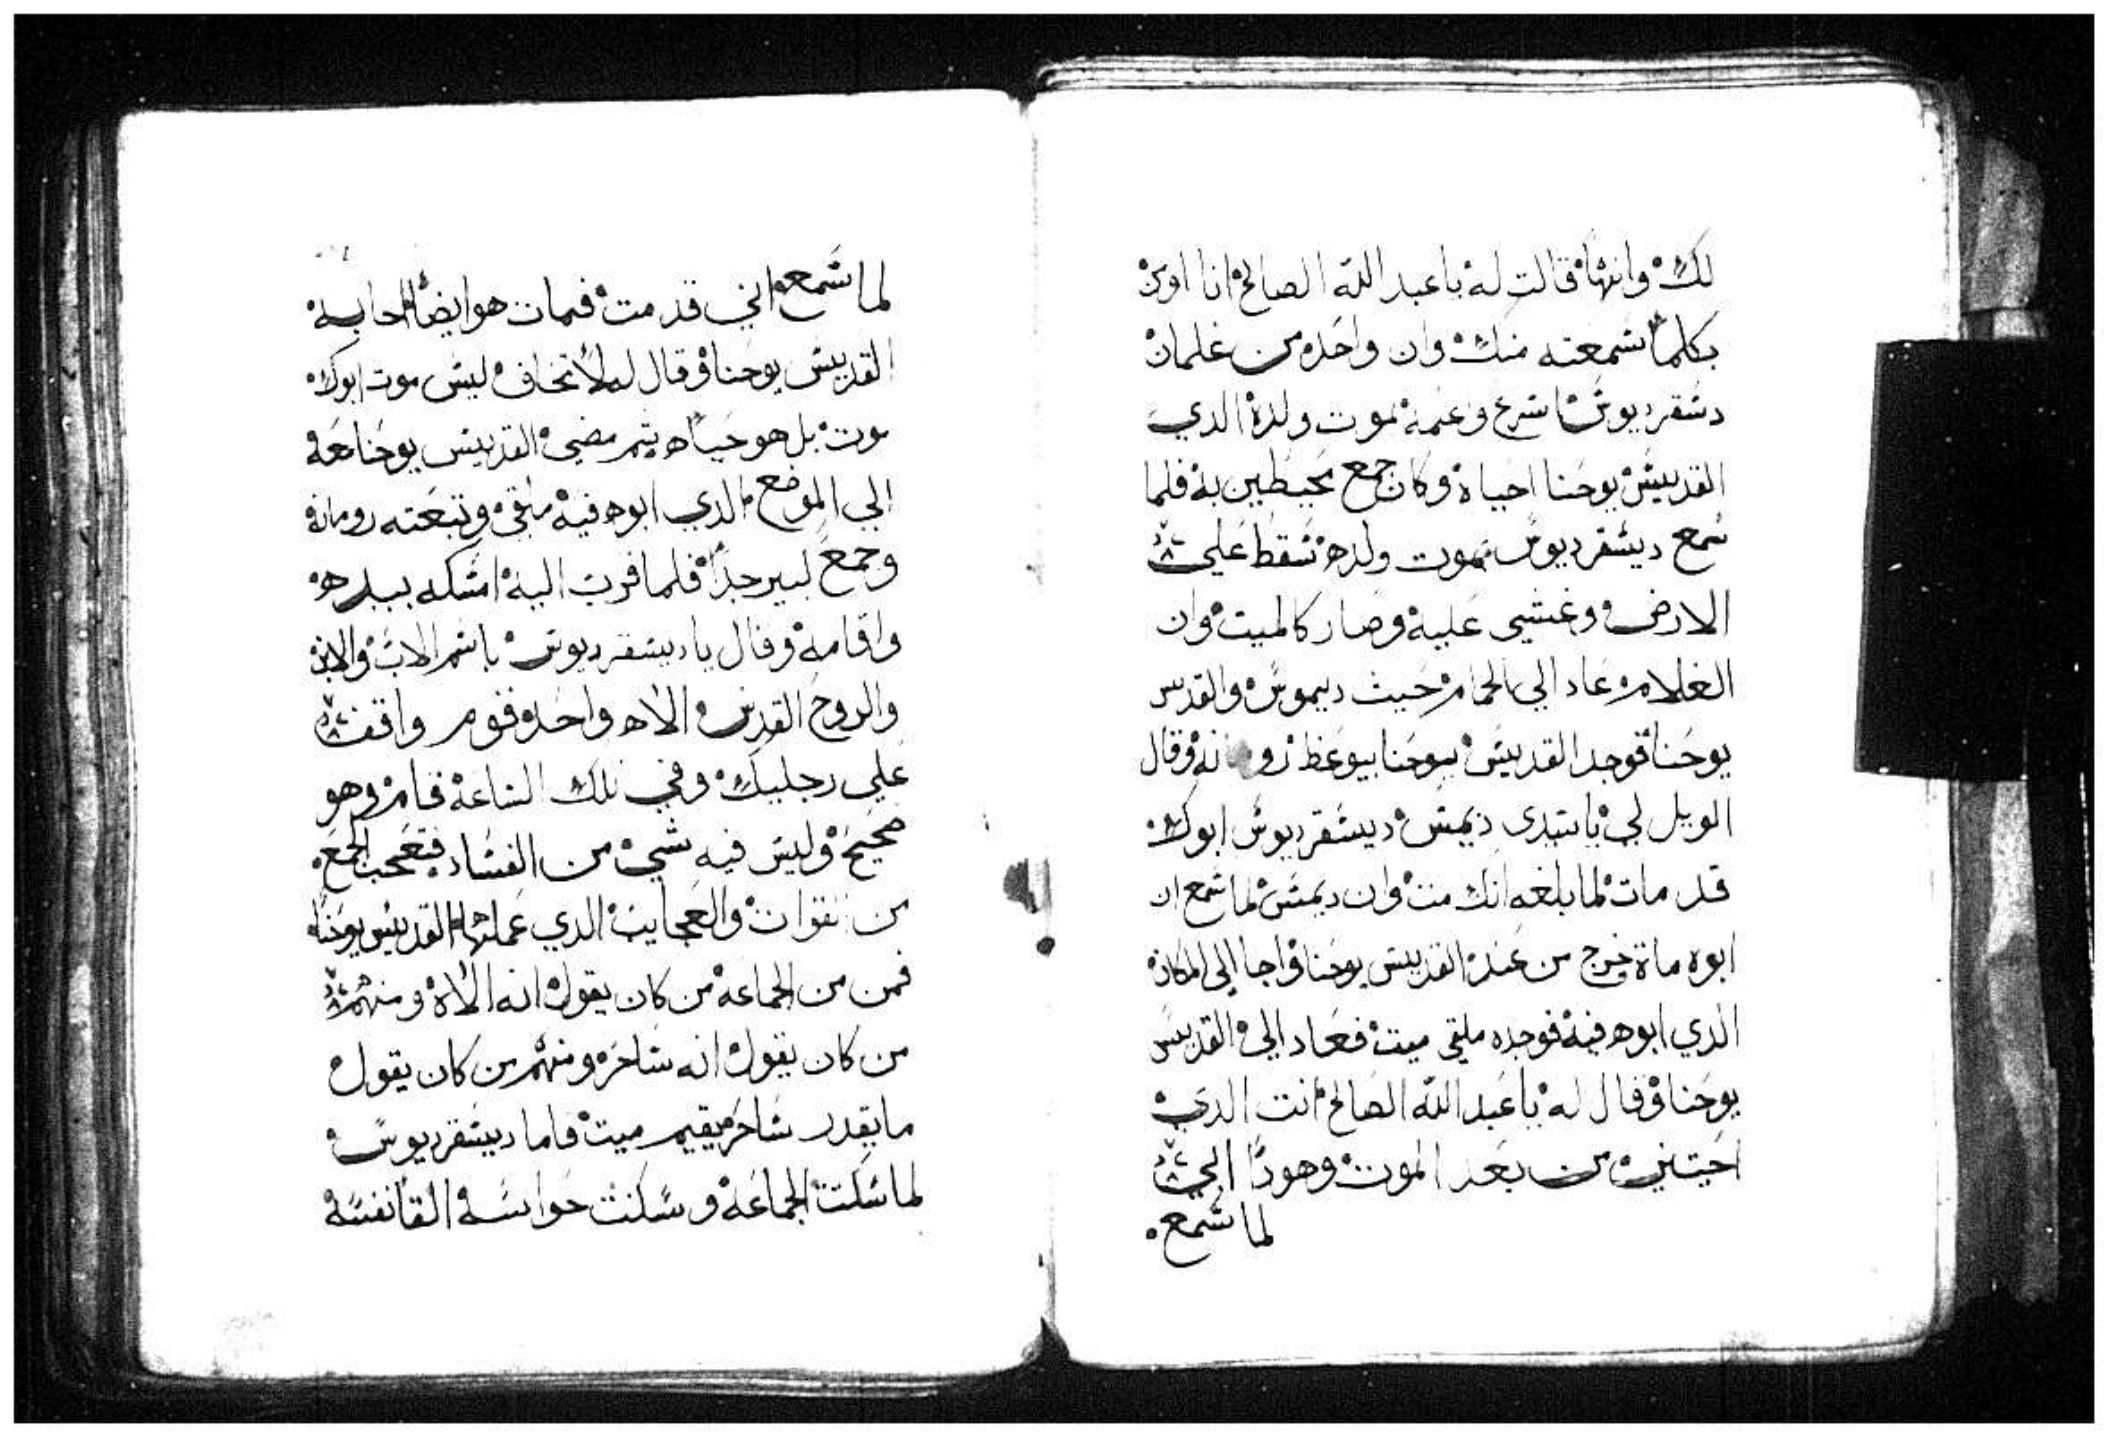 لك وانها قالت له يا عبد الله الصالح انا اومن
بكلما سمعته منك وان واحده من غلمان
دسقرديوس اسرع وعمه لموت ولده الدي
القديس يوحنا احياه وكان جمع محيطين به فلما
سمع ديسقرديوس بموت ولده سقط علي
الارض وغشي عليه وصار كالميت وان
الغلام عاد الي الحمام حيث ديموس والقديس
يوحنا فوجد القديس يوحنا يوعظ رومانه وقال
الويل لي يا سيدي ديمس ديسقرديوس ابوك
قد مات لما بلغه انك مت وان ديمس لما سمع ان
ابوه ماة خرج من عند القديس يوحنا واجا الي المكان
الدي ابوه فيه فوجده ملقي ميت فعاد الي القديس
يوحنا وقال له يا عبد الله الصالح انت الدي
احيتني من بعد الموت وهودا ابي
لما سمع
لما سمع اني قد مت فمات هو ايضا اجابه
القديس يوحنا وقال له لا تخاف ليس موت ابوك
موت بل هو حياه تم مضي القديس يوحنا معه
الي الموضع الدي ابوه فيه ملقي وتبعته رومانه
وجمع كبير جدا فلما قرب اليه امسكه بيده
واقامه وقال يا ديسقرديوس باسم الاب والابن
والروح القدس الاه واحد قوم واقف
علي رجليك وفي تلك الساعه قام وهو
صحيح وليس فيه شي من الفساد فتعجب الجمع
من القوات والعجايب الدي عملها القديس يوحنا
فمن من الجماعه من كان يقول انه الاه ومنهم
من كان يقول انه ساحر ومنهم من كان يقول
ما يقدر ساحر يقيم ميت فاما ديسقرديوس
لما سكت الجماعه وسكنت حواسه القا نفسه